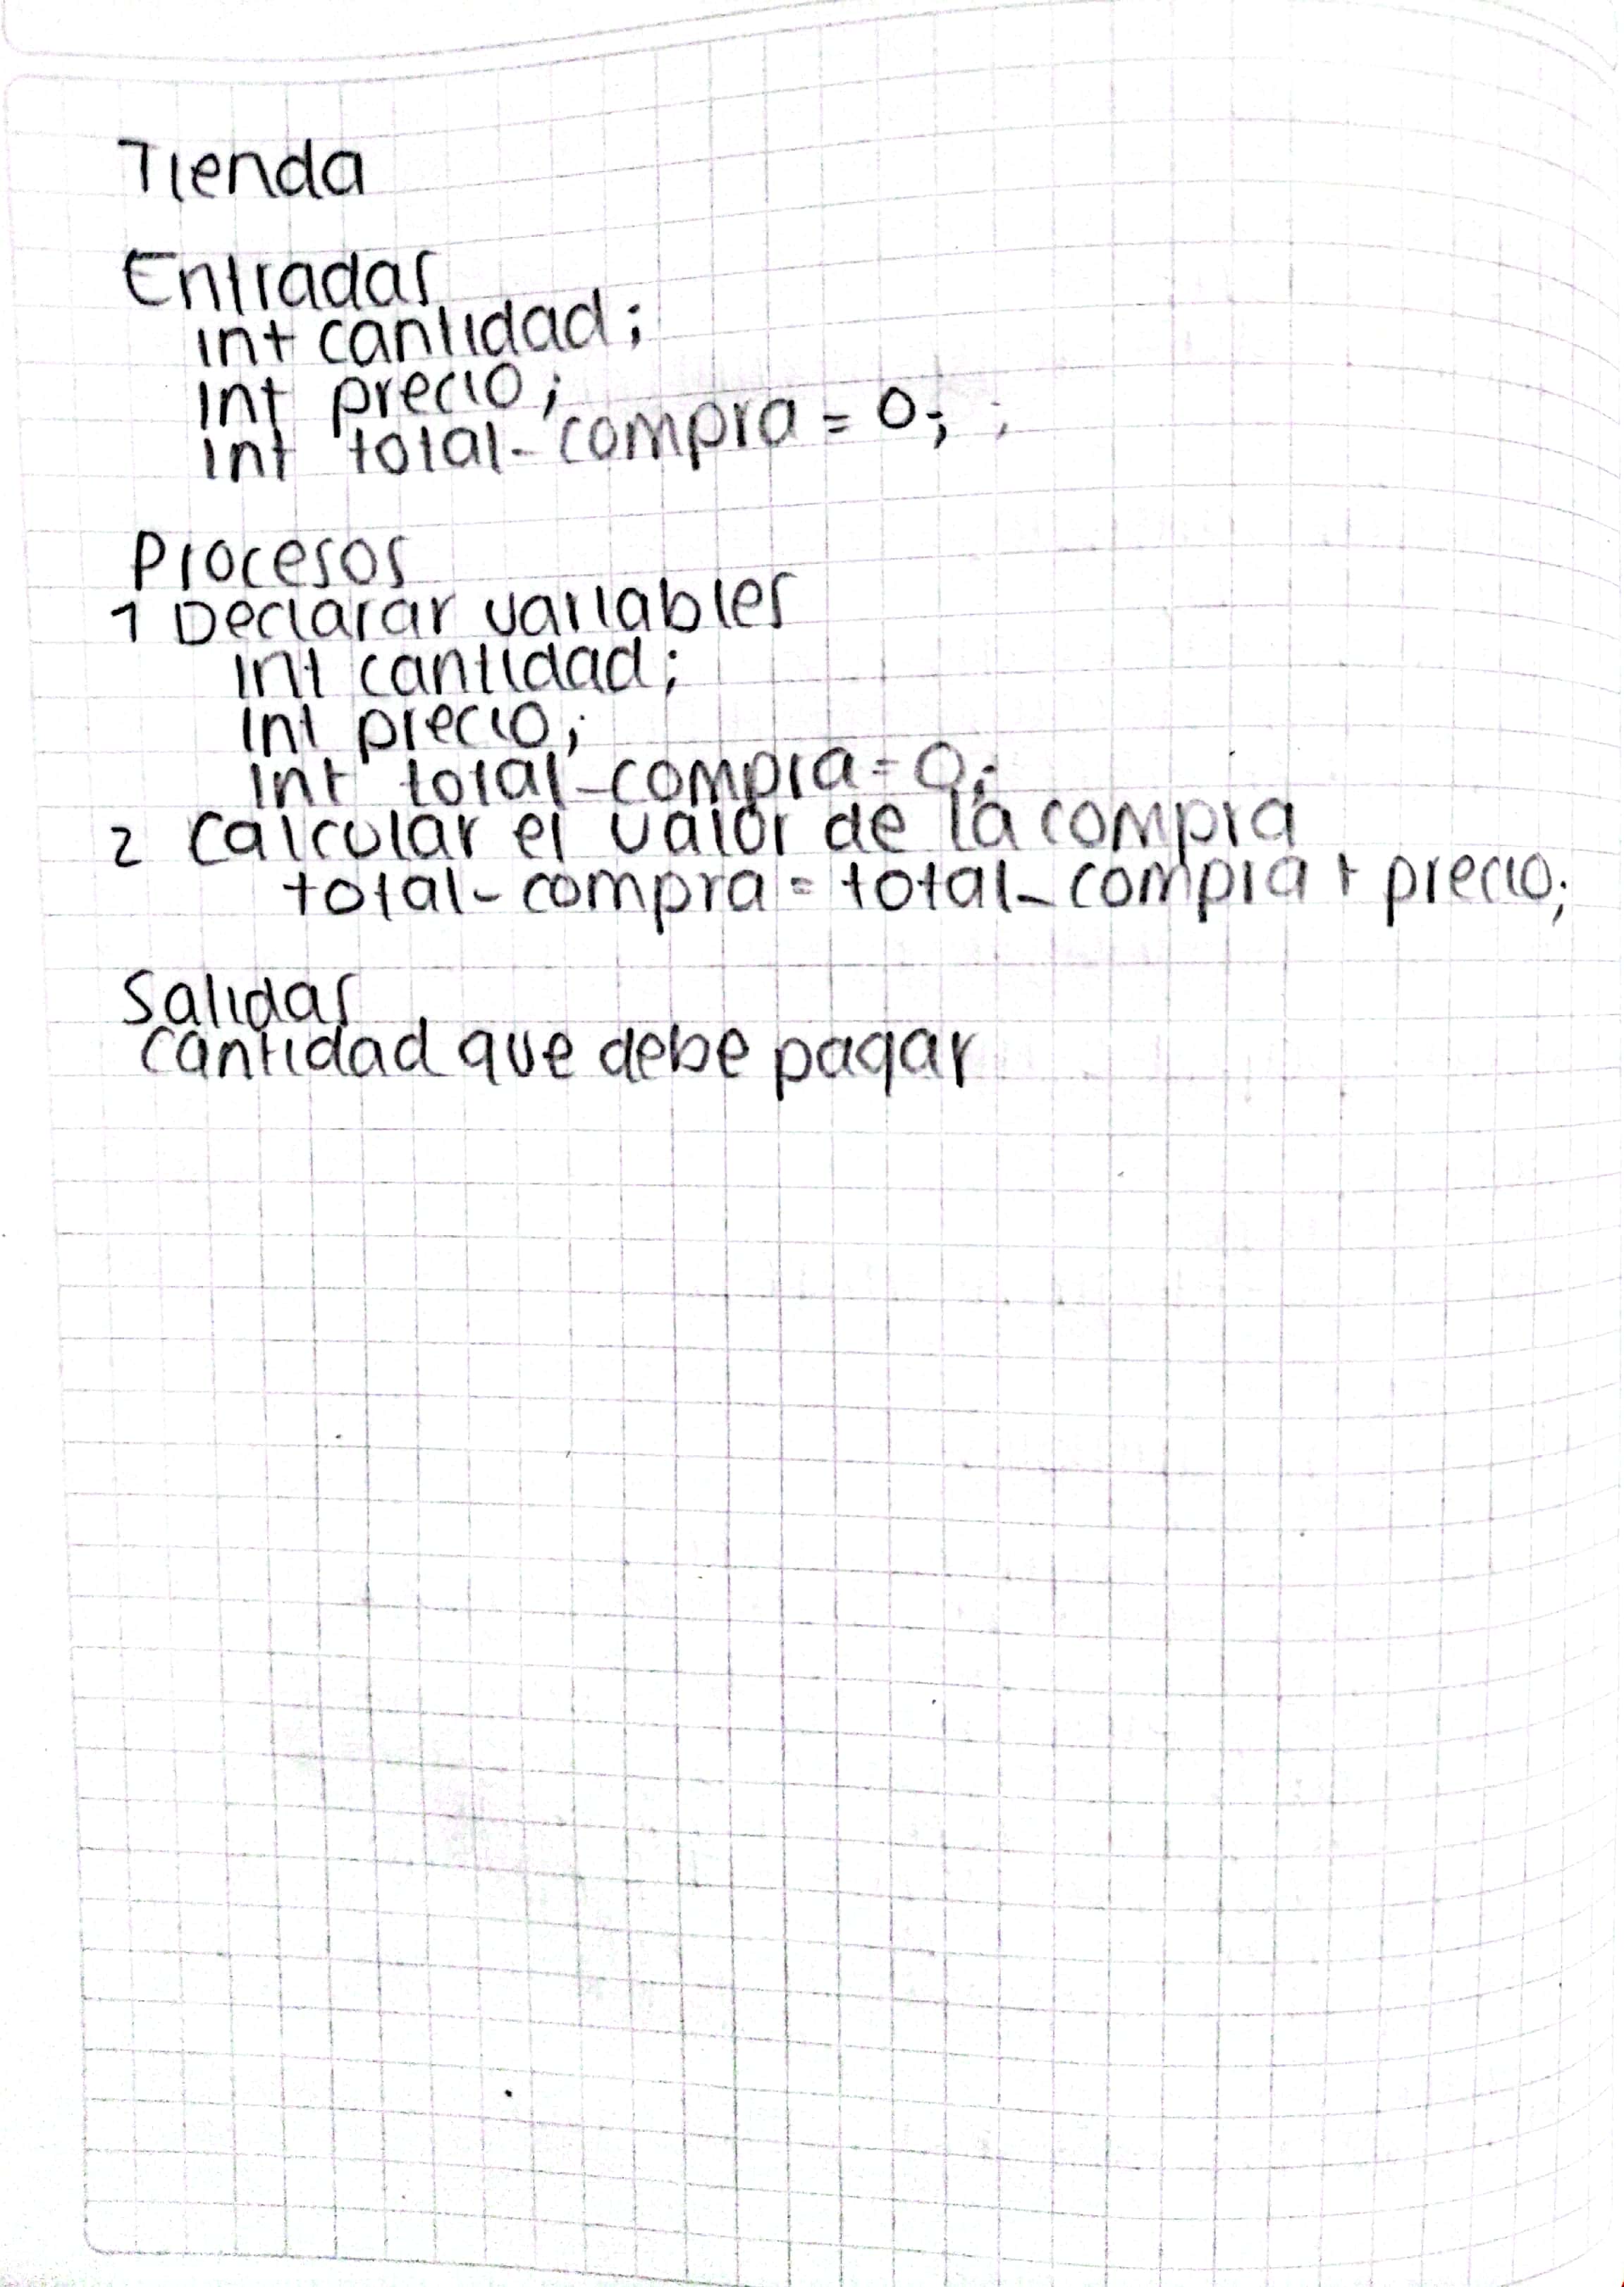 Tienda
Entradas
int cantidad;
int precio;
int total-compra = 0;
Procesos
1 Declarar variables
int cantidad;
int precio;
int total-compra = 0;
2 Calcular el valor de la compra
total-compra = total-compra + precio;
Salidas
Cantidad que debe pagar